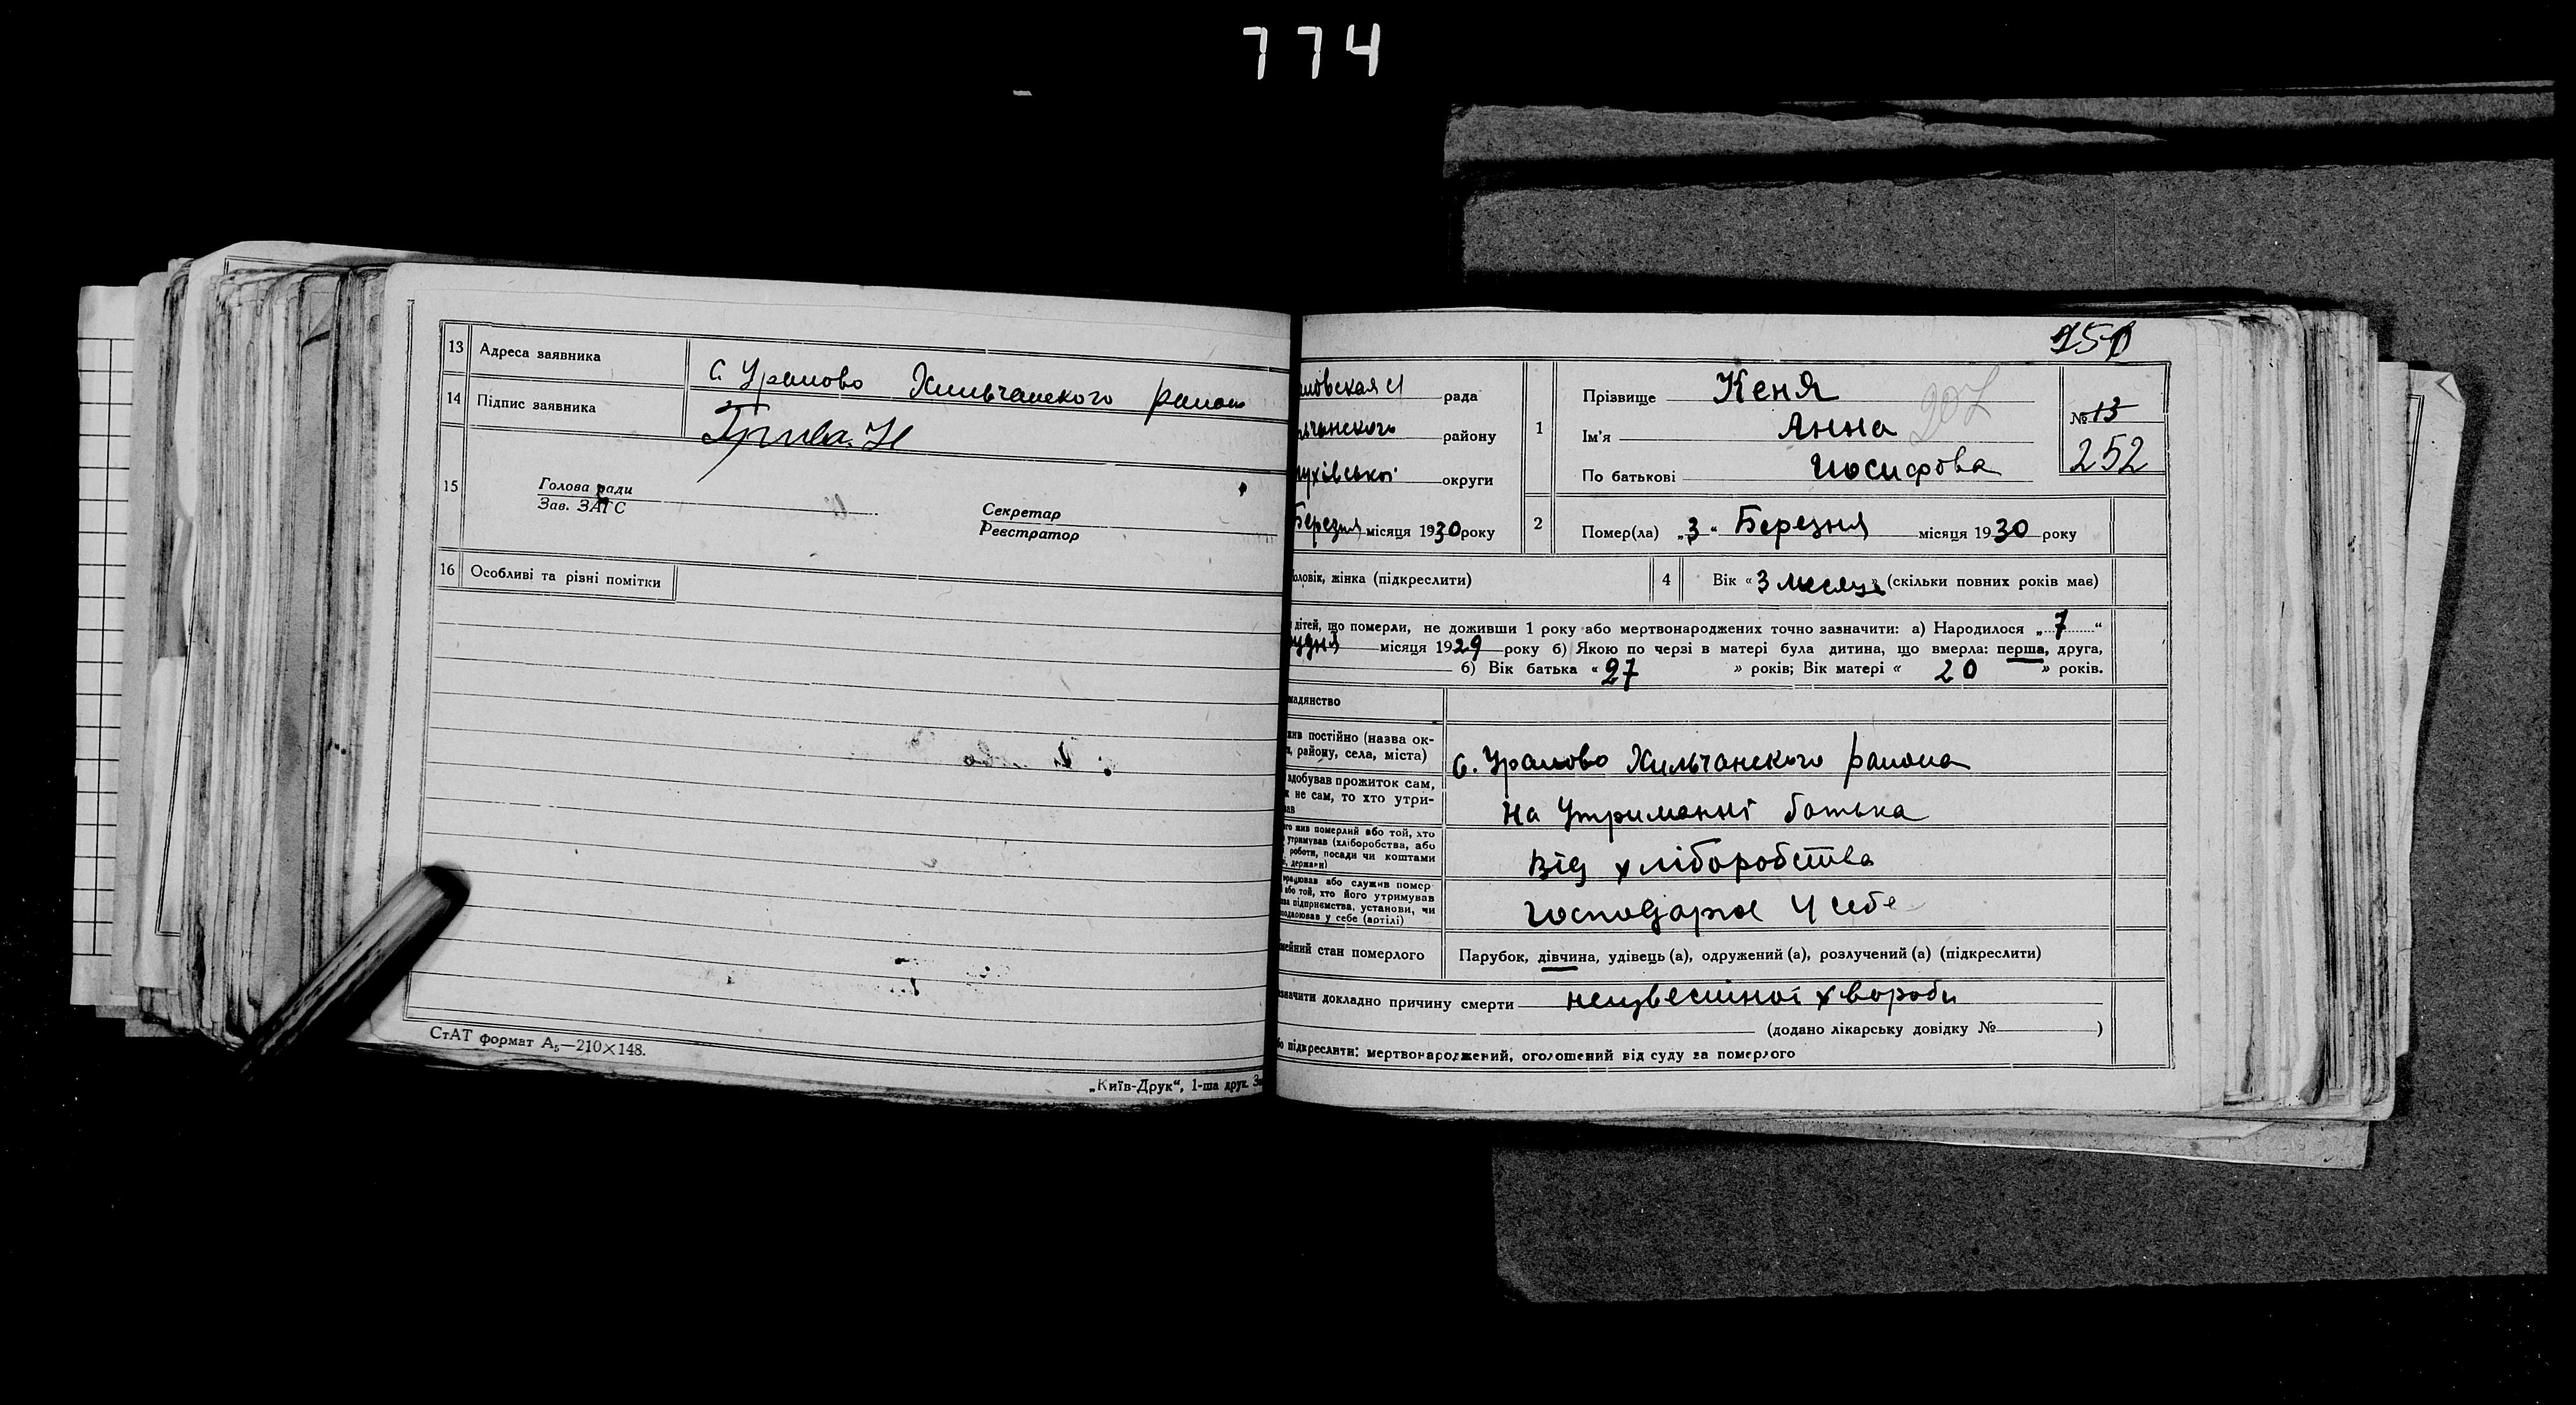 774
13 Адреса заявника
с. Уралово Хильчанского района
14 Підпис заявника
Грива. И
15 Голова ради
Зав. ЗАГС
Секретар
Реєстратор
16 Особливі та різні помітки
СтАТ формат А₅—210×148.
„Київ-Друк“, 1-ша друк. З
251
ловская рада
льчанского району
лухівської округи
Березня місяця 1930 року
1 Прізвище Кеня
Ім'я Анна
По батькові Иосифова
207
№ 13
252
2 Помер(ла) „3“ Березня місяця 1930 року
оловік, жінка (підкреслити)
4 Вік «3 месяца» (скільки повних років має)
дітей, що померли, не доживши 1 року або мертвонароджених точно зазначити: а) Народилося „7“
рудня місяця 1929 року б) Якою по черзі в матері була дитина, що вмерла: перша, друга,
б) Вік батька «27» років; Вік матері «20» років.
мадянство
жив постійно (назва ок-
и, району, села, міста)
с. Уралово Хильчанского района
здобував прожиток сам,
к не сам, то хто утри-
вав
На Утриманні батька
ого жив померлий або той, хто
утримував (хліборобства, або
роботи, посади чи коштами
, держави)
Від хліборобства
працював або служив помер
або той, хто його утримував
ва підприємства, установи, чи
подарював у себе (артілі)
Господарює У себе
мейний стан померлого
Парубок, дівчина, удівець (а), одружений (а), розлучений (а) (підкреслити)
значити докладно причину смерти неизвесиної хвороби
(додано лікарську довідку № )
бо підкреслити: мертвонароджений, оголошений від суду за померлого